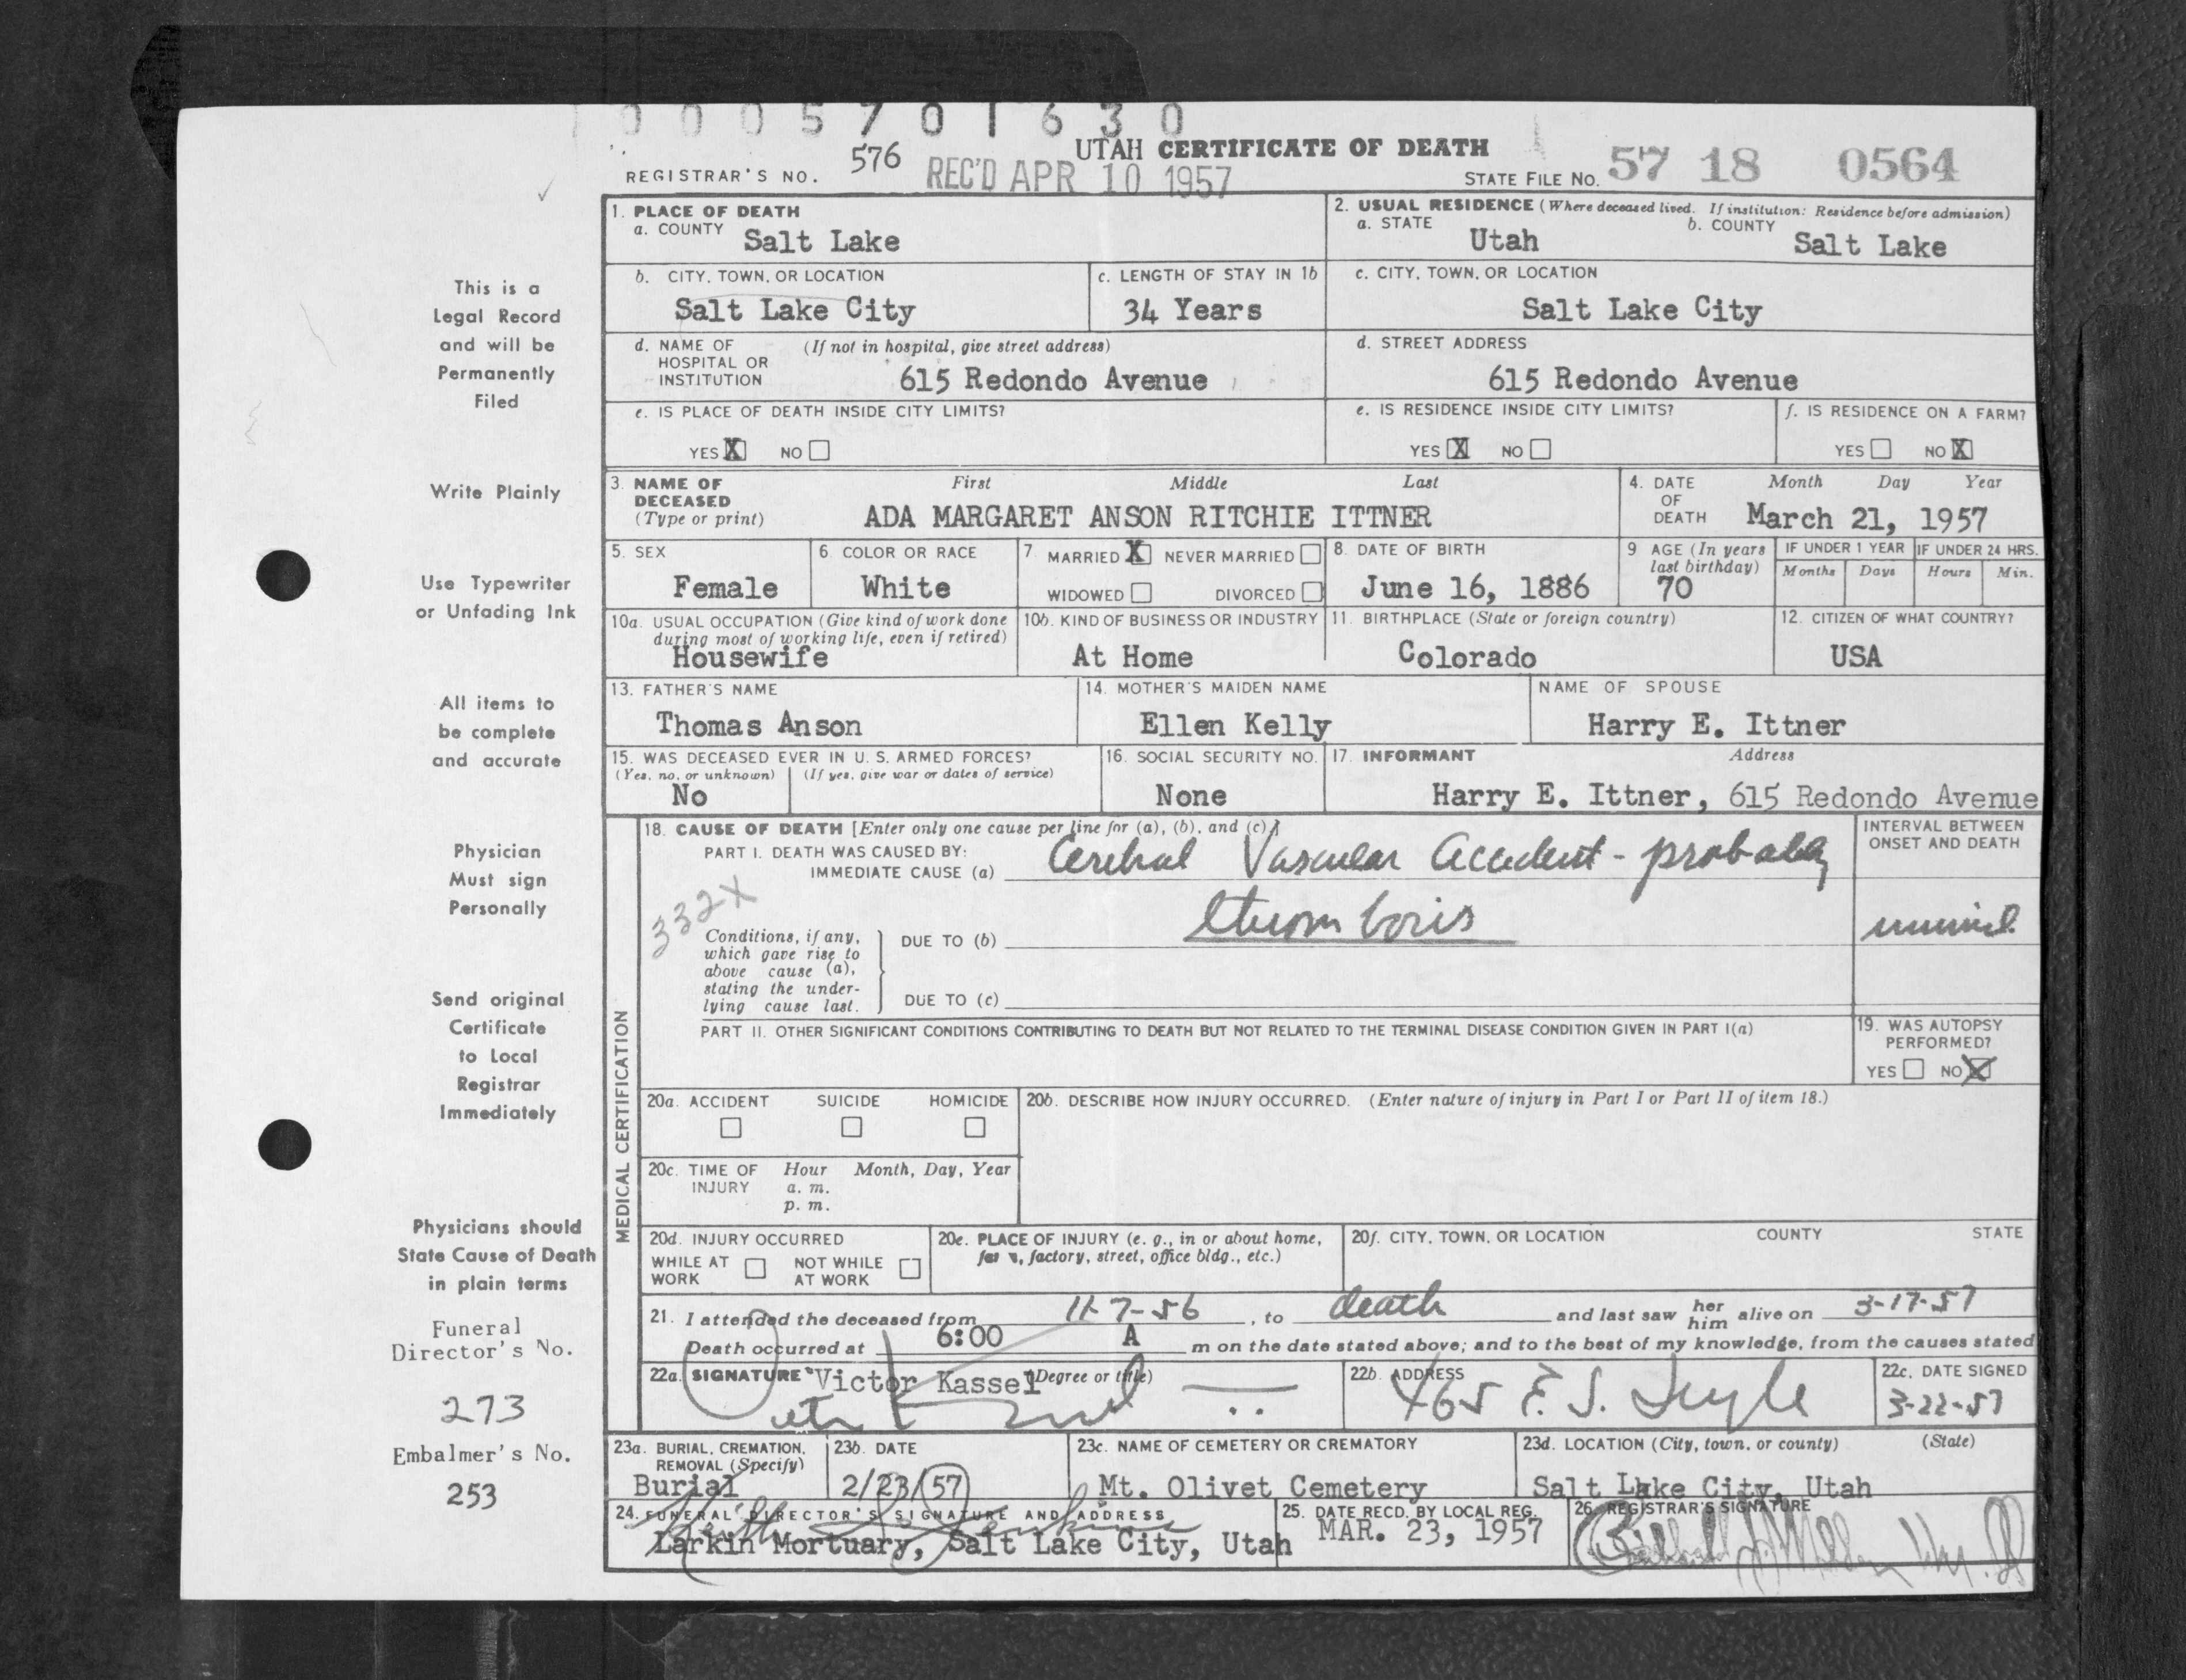 0 0 0 5 7 0 1 6 3 0
UTAH CERTIFICATE OF DEATH
REGISTRAR'S NO. 576 REC'D APR 10 1957 STATE FILE NO. 57 18 0564
1. PLACE OF DEATH
a. COUNTY Salt Lake
2. USUAL RESIDENCE (Where deceased lived. If institution: Residence before admission)
a. STATE Utah b. COUNTY Salt Lake
b. CITY, TOWN, OR LOCATION
Salt Lake City
c. LENGTH OF STAY IN 1b
34 Years
c. CITY, TOWN, OR LOCATION
Salt Lake City
d. NAME OF HOSPITAL OR INSTITUTION (If not in hospital, give street address)
615 Redondo Avenue
d. STREET ADDRESS
615 Redondo Avenue
e. IS PLACE OF DEATH INSIDE CITY LIMITS?
YES X NO
e. IS RESIDENCE INSIDE CITY LIMITS?
YES X NO
f. IS RESIDENCE ON A FARM?
YES NO X
3. NAME OF DECEASED (Type or print)
First Middle Last
ADA MARGARET ANSON RITCHIE ITTNER
4. DATE OF DEATH Month Day Year
March 21, 1957
5. SEX
Female
6. COLOR OR RACE
White
7. MARRIED X NEVER MARRIED
WIDOWED DIVORCED
8. DATE OF BIRTH
June 16, 1886
9 AGE (In years last birthday)
70
IF UNDER 1 YEAR IF UNDER 24 HRS.
Months Days Hours Min.
10a. USUAL OCCUPATION (Give kind of work done during most of working life, even if retired)
Housewife
10b. KIND OF BUSINESS OR INDUSTRY
At Home
11. BIRTHPLACE (State or foreign country)
Colorado
12. CITIZEN OF WHAT COUNTRY?
USA
13. FATHER'S NAME
Thomas Anson
14. MOTHER'S MAIDEN NAME
Ellen Kelly
NAME OF SPOUSE
Harry E. Ittner
15. WAS DECEASED EVER IN U. S. ARMED FORCES?
(Yes, no, or unknown) (If yes, give war or dates of service)
No
16. SOCIAL SECURITY NO.
None
17. INFORMANT Address
Harry E. Ittner, 615 Redondo Avenue
MEDICAL CERTIFICATION
18. CAUSE OF DEATH [Enter only one cause per line for (a), (b), and (c)]
PART I. DEATH WAS CAUSED BY:
IMMEDIATE CAUSE (a) Cerebral Vascular Accident - probably
332X
Conditions, if any, which gave rise to above cause (a), stating the underlying cause last.
DUE TO (b) thrombosis
DUE TO (c)
INTERVAL BETWEEN ONSET AND DEATH
PART II. OTHER SIGNIFICANT CONDITIONS CONTRIBUTING TO DEATH BUT NOT RELATED TO THE TERMINAL DISEASE CONDITION GIVEN IN PART I(a)
19. WAS AUTOPSY PERFORMED?
YES NO X
20a. ACCIDENT SUICIDE HOMICIDE
20b. DESCRIBE HOW INJURY OCCURRED. (Enter nature of injury in Part I or Part II of item 18.)
20c. TIME OF INJURY Hour Month, Day, Year
a. m.
p. m.
20d. INJURY OCCURRED
WHILE AT WORK NOT WHILE AT WORK
20e. PLACE OF INJURY (e. g., in or about home, farm, factory, street, office bldg., etc.)
20f. CITY, TOWN, OR LOCATION COUNTY STATE
21. I attended the deceased from 11-7-56, to death and last saw her him alive on 3-17-57
Death occurred at 6:00 A m on the date stated above; and to the best of my knowledge, from the causes stated
22a. SIGNATURE Victor Kassel (Degree or title)
22b. ADDRESS
465 E. S. Temple
22c. DATE SIGNED
3-22-57
23a. BURIAL, CREMATION, REMOVAL (Specify)
Burial
23b. DATE
2/23/57
23c. NAME OF CEMETERY OR CREMATORY
Mt. Olivet Cemetery
23d. LOCATION (City, town, or county) (State)
Salt Lake City, Utah
24. FUNERAL DIRECTOR'S SIGNATURE AND ADDRESS
Larkin Mortuary, Salt Lake City, Utah
25. DATE RECD. BY LOCAL REG.
MAR. 23, 1957
26. REGISTRAR'S SIGNATURE
This is a
Legal Record
and will be
Permanently
Filed
Write Plainly
Use Typewriter
or Unfading Ink
All items to
be complete
and accurate
Physician
Must sign
Personally
Send original
Certificate
to Local
Registrar
Immediately
Physicians should
State Cause of Death
in plain terms
Funeral
Director's No.
273
Embalmer's No.
253